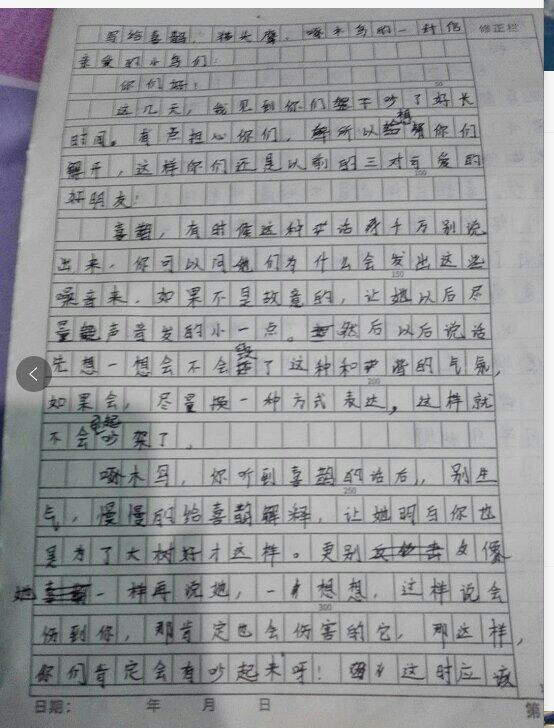 写给喜鹊、猫头鹰、啄木鸟的一封信 修正栏
亲爱的小鸟们:
你们好!
50
这几天,我见到你们架不吵了好长
时间。有点担心你们,所以想给你们
解开,这样你们还是以前的三对可爱的
100
好朋友!
喜鹊,有时候这种话千万别说
出来,你可以问他们为什么会发出这些
150
噪音来,如果不是故意的,让她以后尽
量声音发的小一点。然后以后说话
先想一想会不会毁了这种和谐的气氛,
200
如果会,尽量换一种方式表达,这样就
不会引起吵架了。
啄木鸟,你听到喜鹊的话后,别生
250
气,慢慢的给喜鹊解释,让她明白你也
是为了大树好才这样。更别反像
她一样再说她,想想,这样说会
300
伤到你,那肯定也会伤害的它,那这样,
你们肯定会有吵起来呀!这时应该
日期: 年 月 日 第